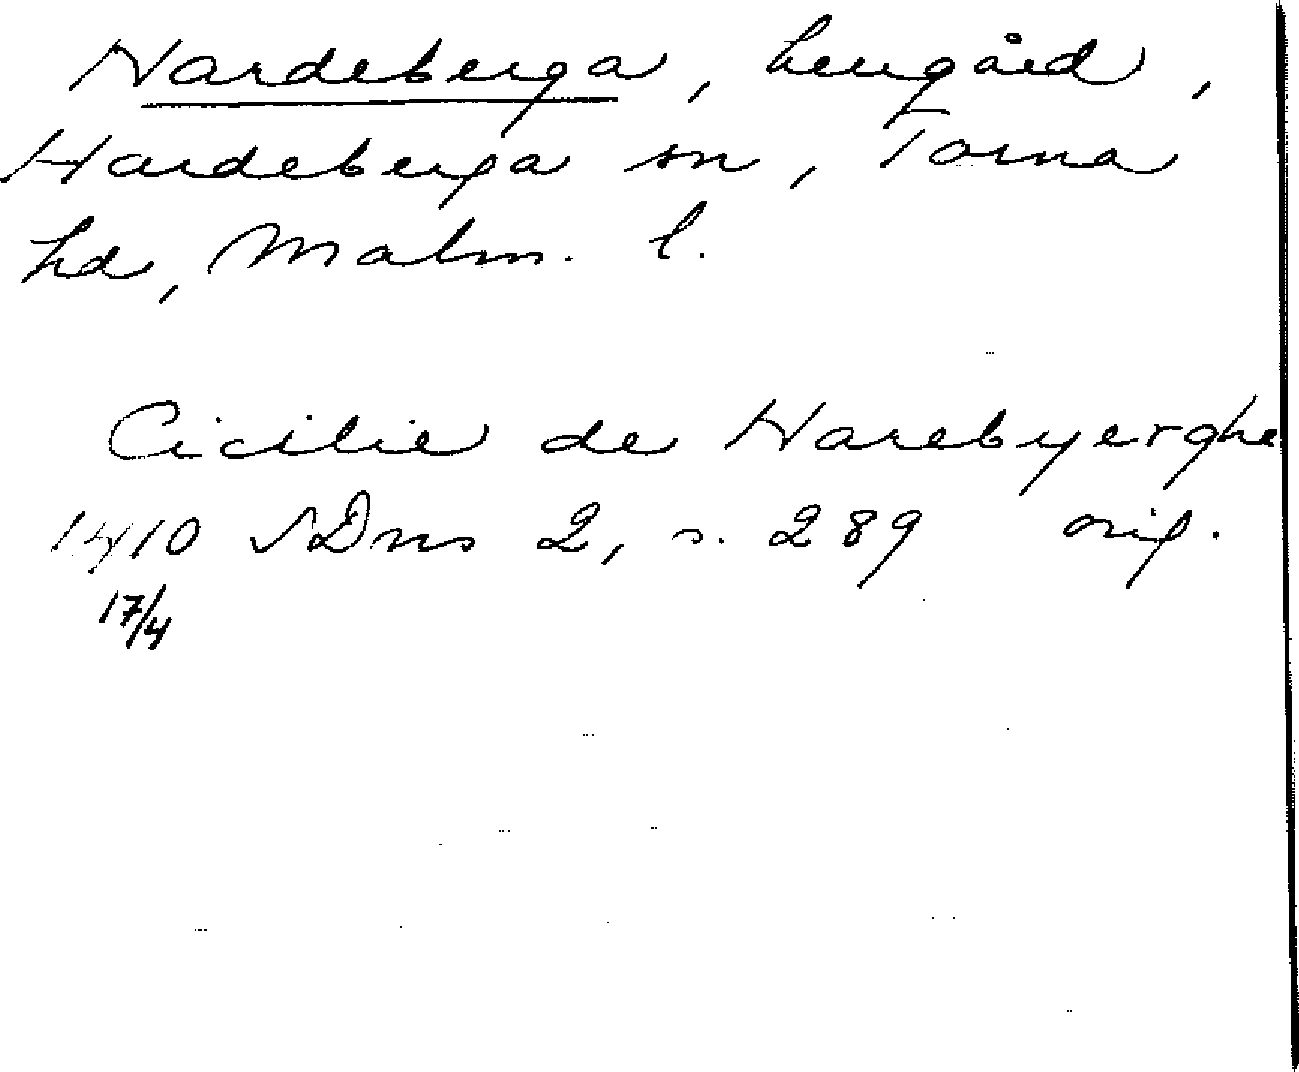 Hardeberga, herrgård,
Hardeberga sn, Torna
hd, Malm. l.
Cicilie de Harebyerghe
1410 SDns 2, s. 289 orig.
17/4